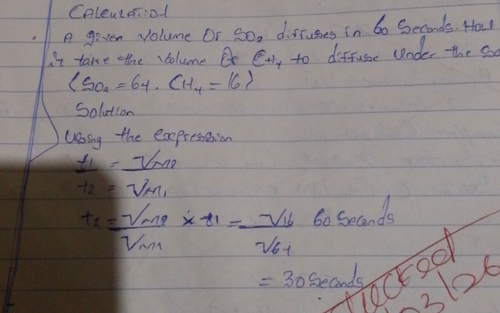 Calculation
A given Volume Of SO₂ diffuses in 60 Seconds. How
it take the volume Of CH₄ to diffuse under the Sa
(SO₂ = 64. CH₄ = 16)
Solution
Using the expression
t₁ = √m₂
t₂ = √m₁
t₂ = √m₂ × t₁ = √16 60 Seconds
√m₁ √64
= 30 Seconds